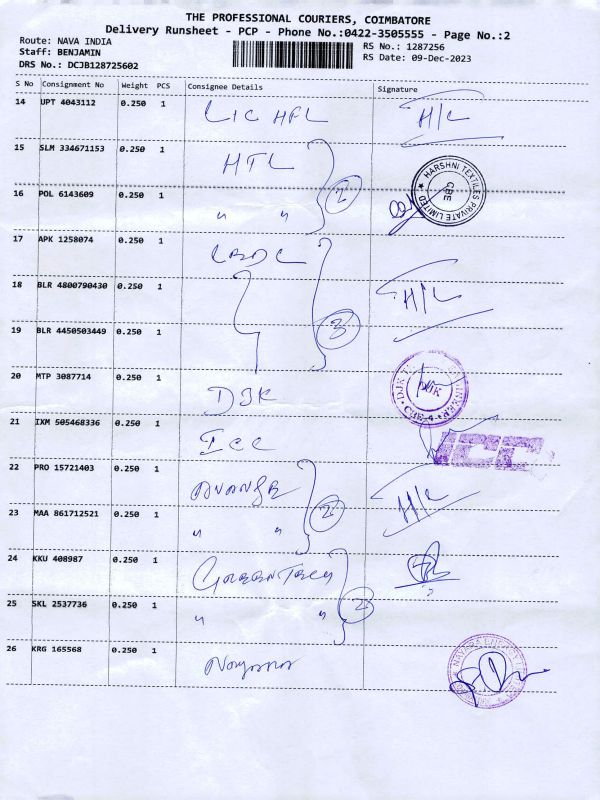 THE PROFESSIONAL COURIERS, COIMBATORE
Delivery Runsheet - PCP - Phone No.:0422-3505555 - Page No.:2
Route: NAVA INDIA
Staff: BENJAMIN
DRS No.: DCJB128725602
RS No.: 1287256
RS Date: 09-Dec-2023
S No Consignment No Weight PCS Consignee Details Signature
14 UPT 4043112 0.250 1 LIC HFL H/L
15 SLM 334671153 0.250 1 HTL
HARSHNI TEXTILES PRIVATE LIMITED ★ CBE
16 POL 6143609 0.250 1 " " 2
17 APK 1258074 0.250 1
18 BLR 4800790430 0.250 1 H/L
19 BLR 4450503449 0.250 1 3
20 MTP 3087714 0.250 1 DJK
DJK
CBE-4
21 IXM 505468336 0.250 1 ICC
ICC
22 PRO 15721403 0.250 1
23 MAA 861712521 0.250 1 " " 2 H/L
24 KKU 408987 0.250 1
25 SKL 2537736 0.250 1 " " 2
26 KRG 165568 0.250 1